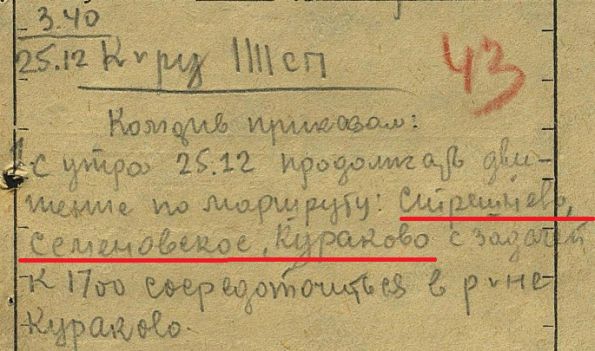 3.40
25.12 К-ру 1111 сп
43
Комдив приказал:
С утра 25.12 продолжать дви-
жение по маршруту: Стрешнево,
Семеновское, Кураково с задачей
к 1700 сосредоточиться в р-не
Кураково.